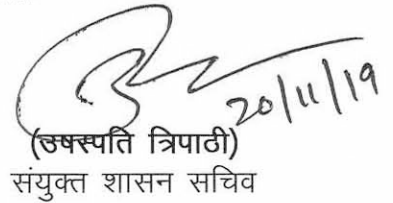 20/11/19
(उषस्पति त्रिपाठी)
संयुक्त शासन सचिव